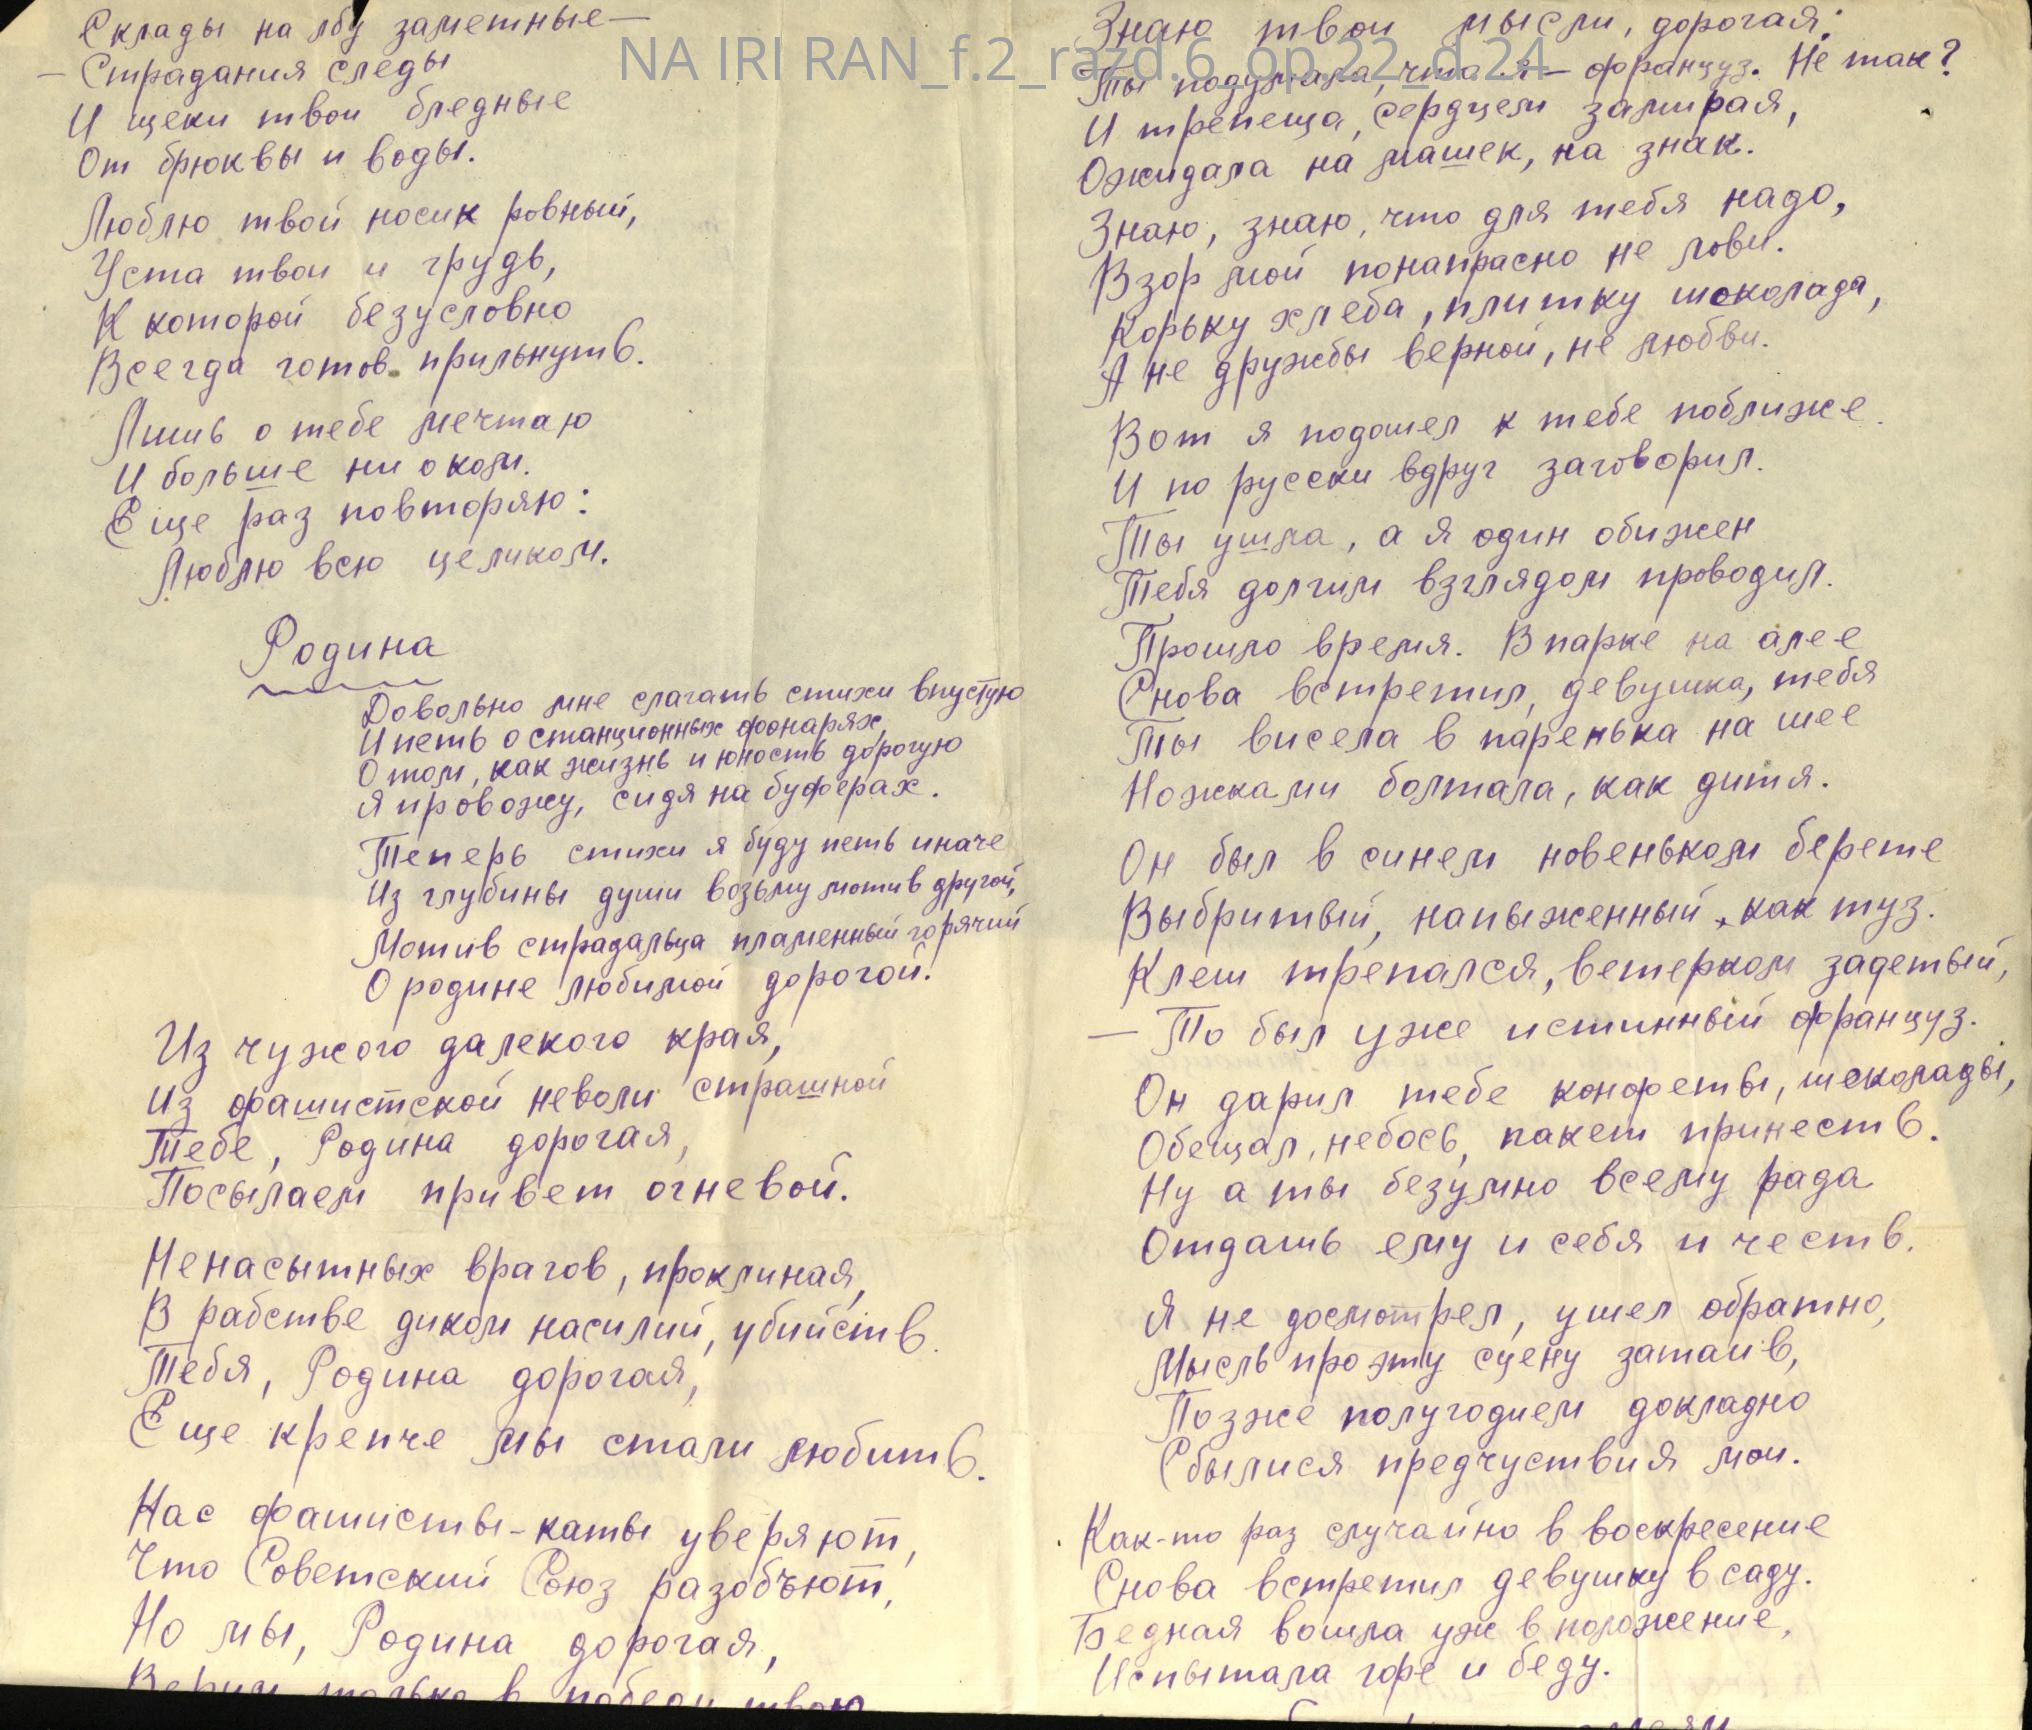 NA IRI RAN_f.2_razd.6_op.22_d.24
Склады на лбу заметные —
— Страдания следы
И щеки твои бледные
От брюквы и воды.
Люблю твой носик ровный,
Уста твои и грудь,
К которой безусловно
Всегда готов прильнуть.
Лишь о тебе мечтаю
И больше ни о ком.
Еще раз повторяю:
Люблю всю целиком.
Родина
Довольно мне слагать стихи впустую
И петь о станционных фонарях,
О том, как жизнь и юность дорогую
Я провожу, сидя на буферах.
Теперь стихи я буду петь иначе
Из глубины души возьму мотив другой,
Мотив страдальца пламенный горячий
О родине любимой дорогой.
Из чужого далекого края,
Из фашистской неволи страшной
Тебе, Родина дорогая,
Посылаем привет огневой.
Ненасытных врагов, проклиная,
В рабстве диком насилий, убийств
Тебя, Родина дорогая,
Еще крепче мы стали любить.
Нас фашисты-каты уверяют,
Что Советский Союз разобъют,
Но мы, Родина дорогая,
Верим только в победу твою
Знаю твои мысли, дорогая:
Ты подумала, что я — француз. Не так?
И трепеща, сердцем замирая,
Ожидала на машек, на знак.
Знаю, знаю, что для тебя надо,
Взор мой понапрасно не лови.
Корьку хлеба, плитку шоколада,
А не дружбы верной, не любви.
Вот я подошел к тебе поближе
И по русски вдруг заговорил.
Ты ушла, а я один обижен
Тебя долгим взглядом проводил.
Прошло время. В парке на алее
Снова встретил, девушка, тебя
Ты висела в паренька на шее
Ножками болтала, как дитя.
Он был в синем новеньком берете
Выбритый, напыженный, как туз.
Клеш трепался, ветерком задетый,
— То был уже истинный француз.
Он дарил тебе конфеты, шеколады,
Обещал, небось, пакет принесть.
Ну а ты безумно всему рада
Отдашь ему и себя и честь.
Я не досмотрел, ушел обратно,
Мысль про эту сцену затаив,
Позже полугодием докладно
Сбылися предчуствия мои.
Как-то раз случайно в воскресение
Снова встретил девушку в саду.
Бедная вошла уж в положение,
Испытала горе и беду.